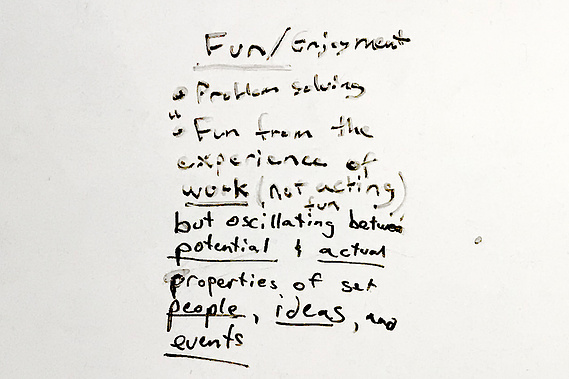 Fun/Enjoyment
• Problem solving
• Fun from the
experience of
work (not acting)
fun
but oscillating between
potential & actual
properties of set
people, ideas, and
events